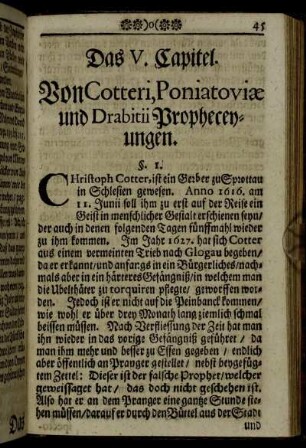 ❀❀)o(❀❀ 45
Das V. Capitel.
Von Cotteri, Poniatoviæ
und Drabitii Prophecey-
ungen.
§. 1.
CHristoph Cotter, ist ein Gerber zu Sprottau
in Schlesien gewesen. Anno 1616. am
11. Junii soll ihm zu erst auf der Reise ein
Geist in menschlicher Gestalt erschienen seyn/
der auch in denen folgenden Tagen fünffmahl wieder
zu ihm kommen. Im Jahr 1627. hat sich Cotter
aus einem vermeinten Trieb nach Glogau begeben/
da er erkannt/ und anfangs in ein Bürgerliches/ nach
mals aber in ein härteres Gefängniß/ in welchem man
die Ubelthäter zu torquiren pflegte/ geworffen wor-
den. Jedoch ist er nicht auf die Peinbanck kommen/
wie wohl er über drey Monath lang ziemlich schmal
beissen müssen. Nach Verfliessung der Zeit hat man
ihn wieder in das vorige Gefängniß geführet / da
man ihm mehr und besser zu Essen gegeben / endlich
aber öffentlich an Pranger gestellet/ nebst beygefüg-
tem Zettel: Dieser ist der falsche Prophet/ welcher
geweissaget hat/ das doch nicht geschehen ist.
Also hat er an dem Pranger eine gantze Stunde ste-
hen müssen/ darauf er durch den Büttel aus der Stadt
und